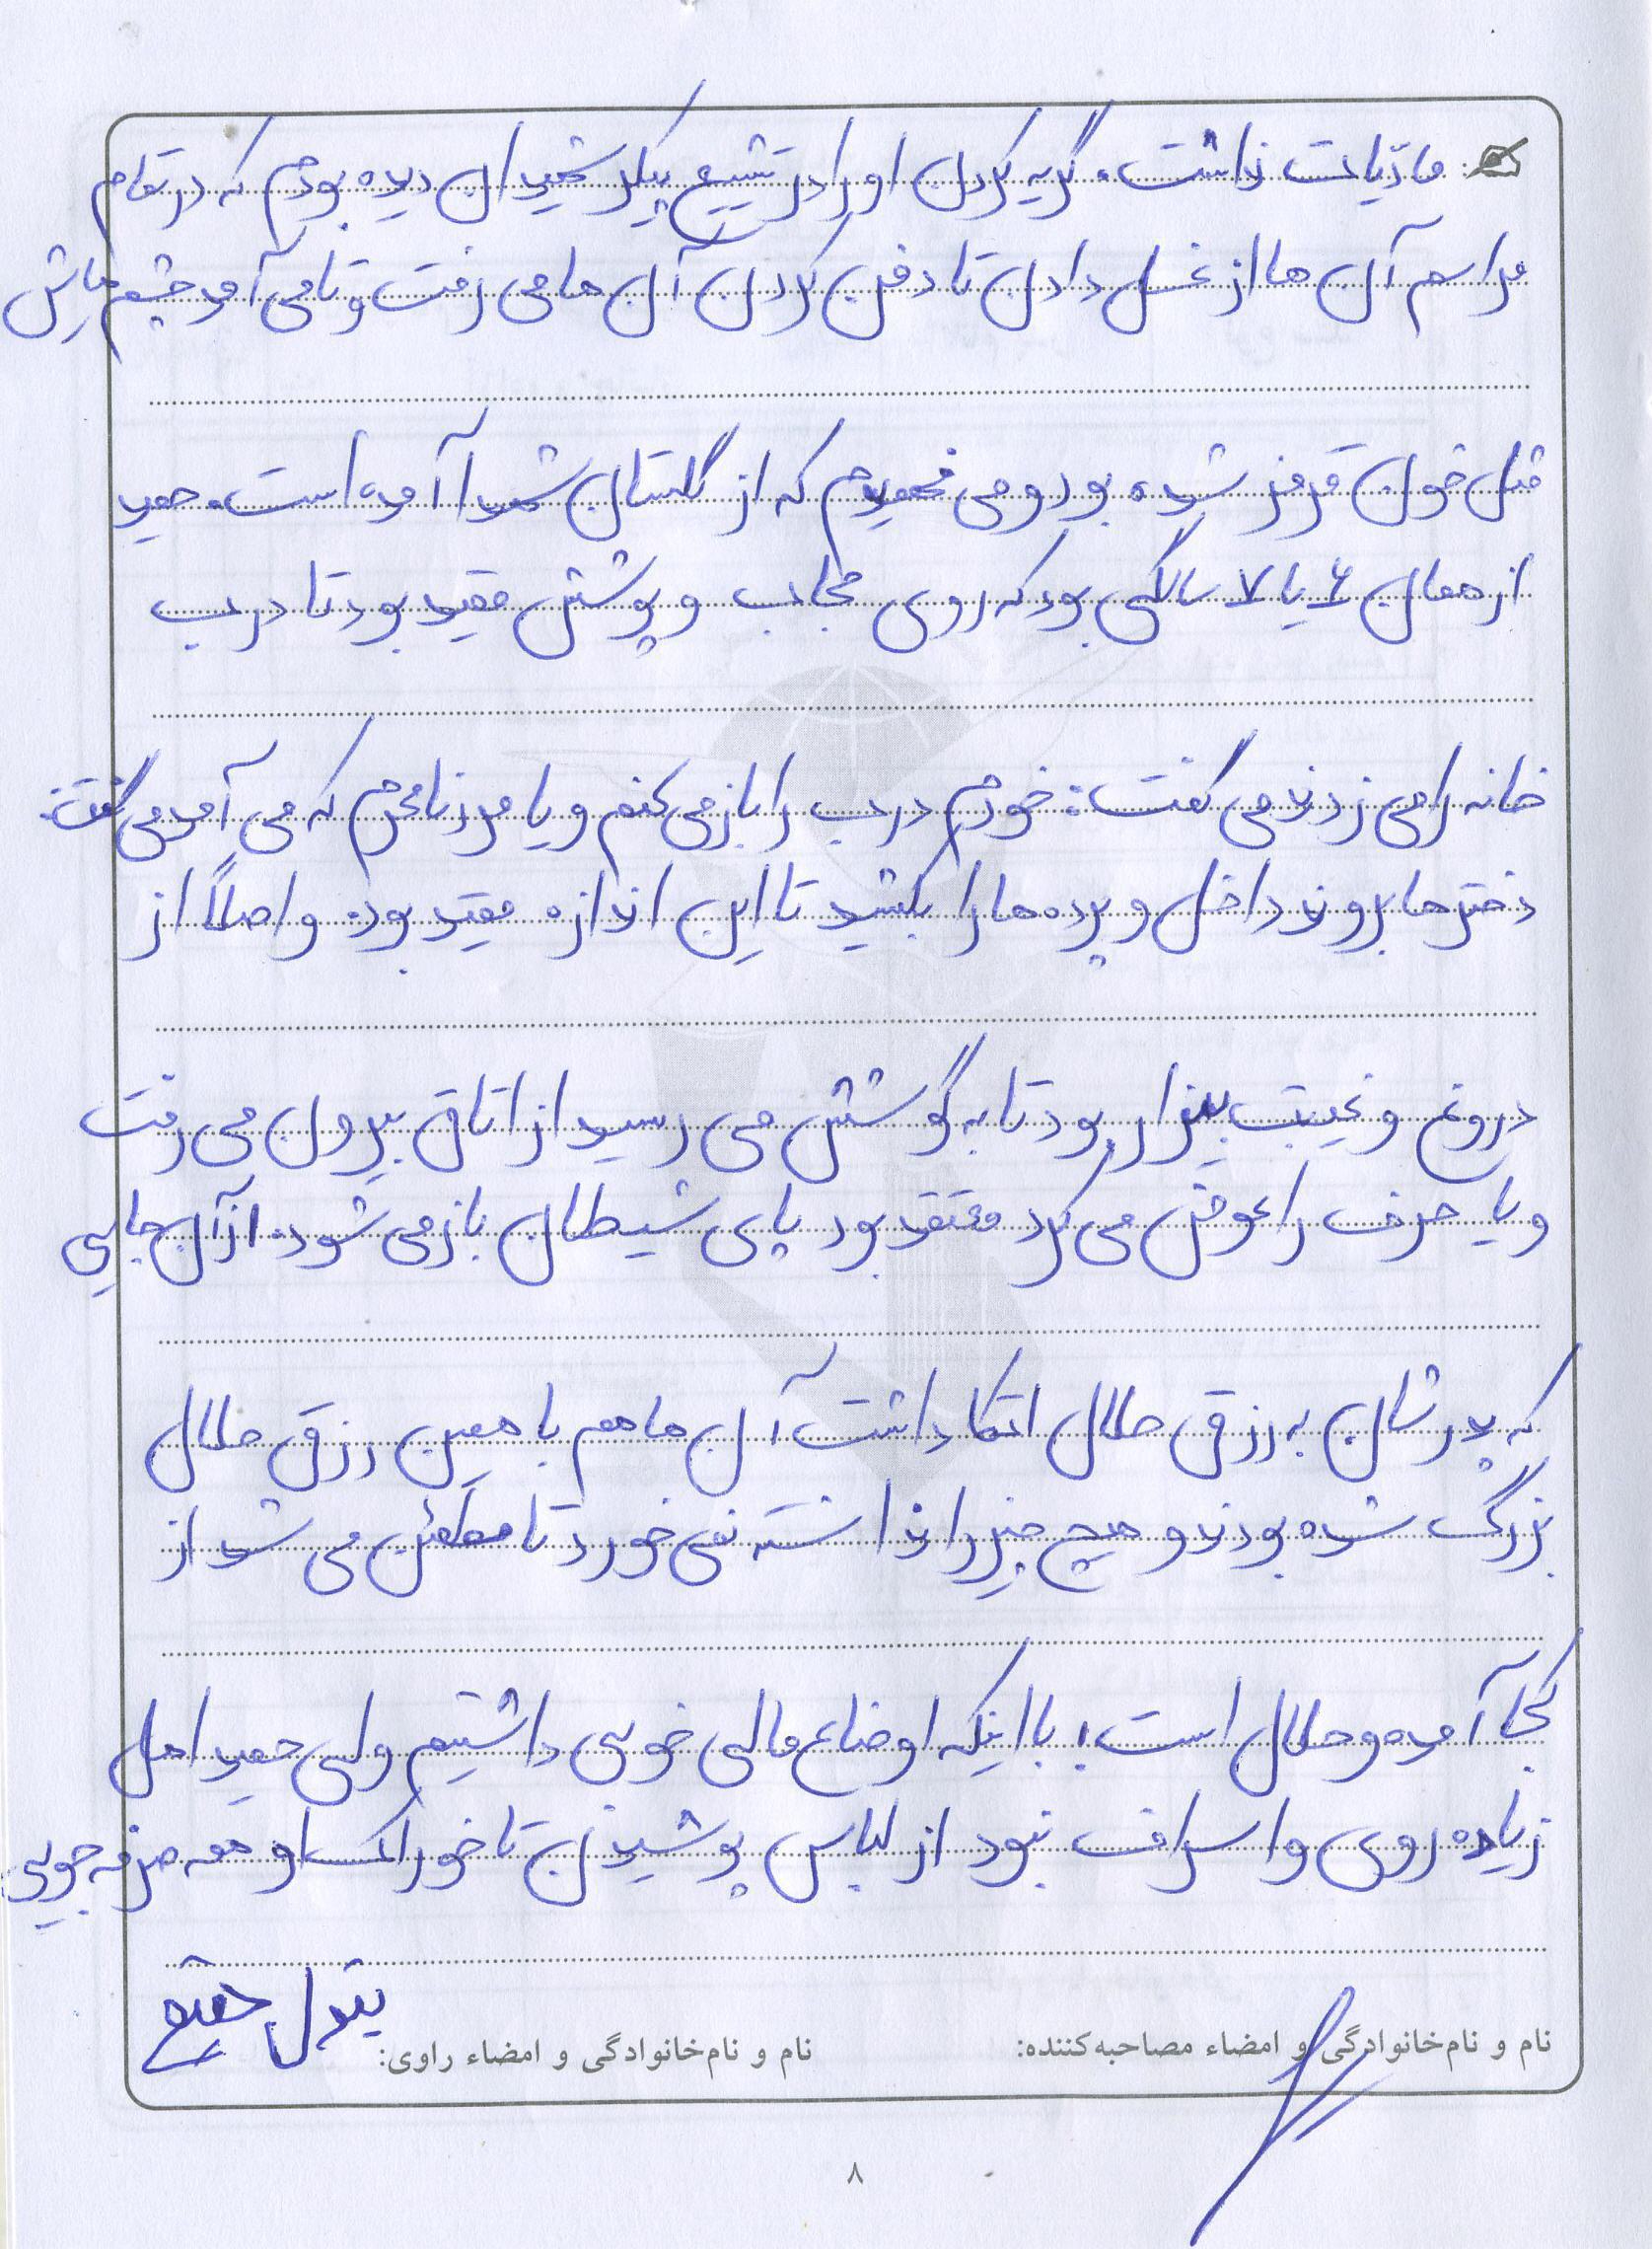 مادّیات نداشت. گریه کردن او را در تشییع پیکر شهیدان دیده بودم که در تمام
مراسم آن ها از غسل دادن تا دفن کردن آن ها می رفت و تا می آمد چشم هایش
مثل خون قرمز شده بود و می فهمیدم که از گلستان شهدا آمده است. حمید
از همان ۶ یا ۷ سالگی بود که روی حجاب و پوشش مقید بود تا درب
خانه را می زدند می گفت: خودم درب را باز می کنم و یا مرد نامحرم که می آمد می گفت:
دخترها بروند داخل و پرده ها را بکشید تا این اندازه مقید بود. و اصلاً از
دروغ و غیبت بیزار بود تا به گوشش می رسید از اتاق بیرون می رفت
و یا حرف را عوض می کرد معتقد بود پای شیطان باز می شود. از آن جایی
که پدرشان به رزق حلال اتکا داشت آن ها هم با همین رزق حلال
بزرگ شده بودند و هیچ چیز را ندانسته نمی خورد تا مطمئن می شد از
کجا آمده و حلال است! با اینکه اوضاع مالی خوبی داشتیم ولی حمید اهل
زیاده روی و اسراف نبود از لباس پوشیدن تا خوراک او همه صرفه جویی
نام و نام‌خانوادگی و امضاء مصاحبه‌کننده:
نام و نام‌خانوادگی و امضاء راوی: بتول
۸